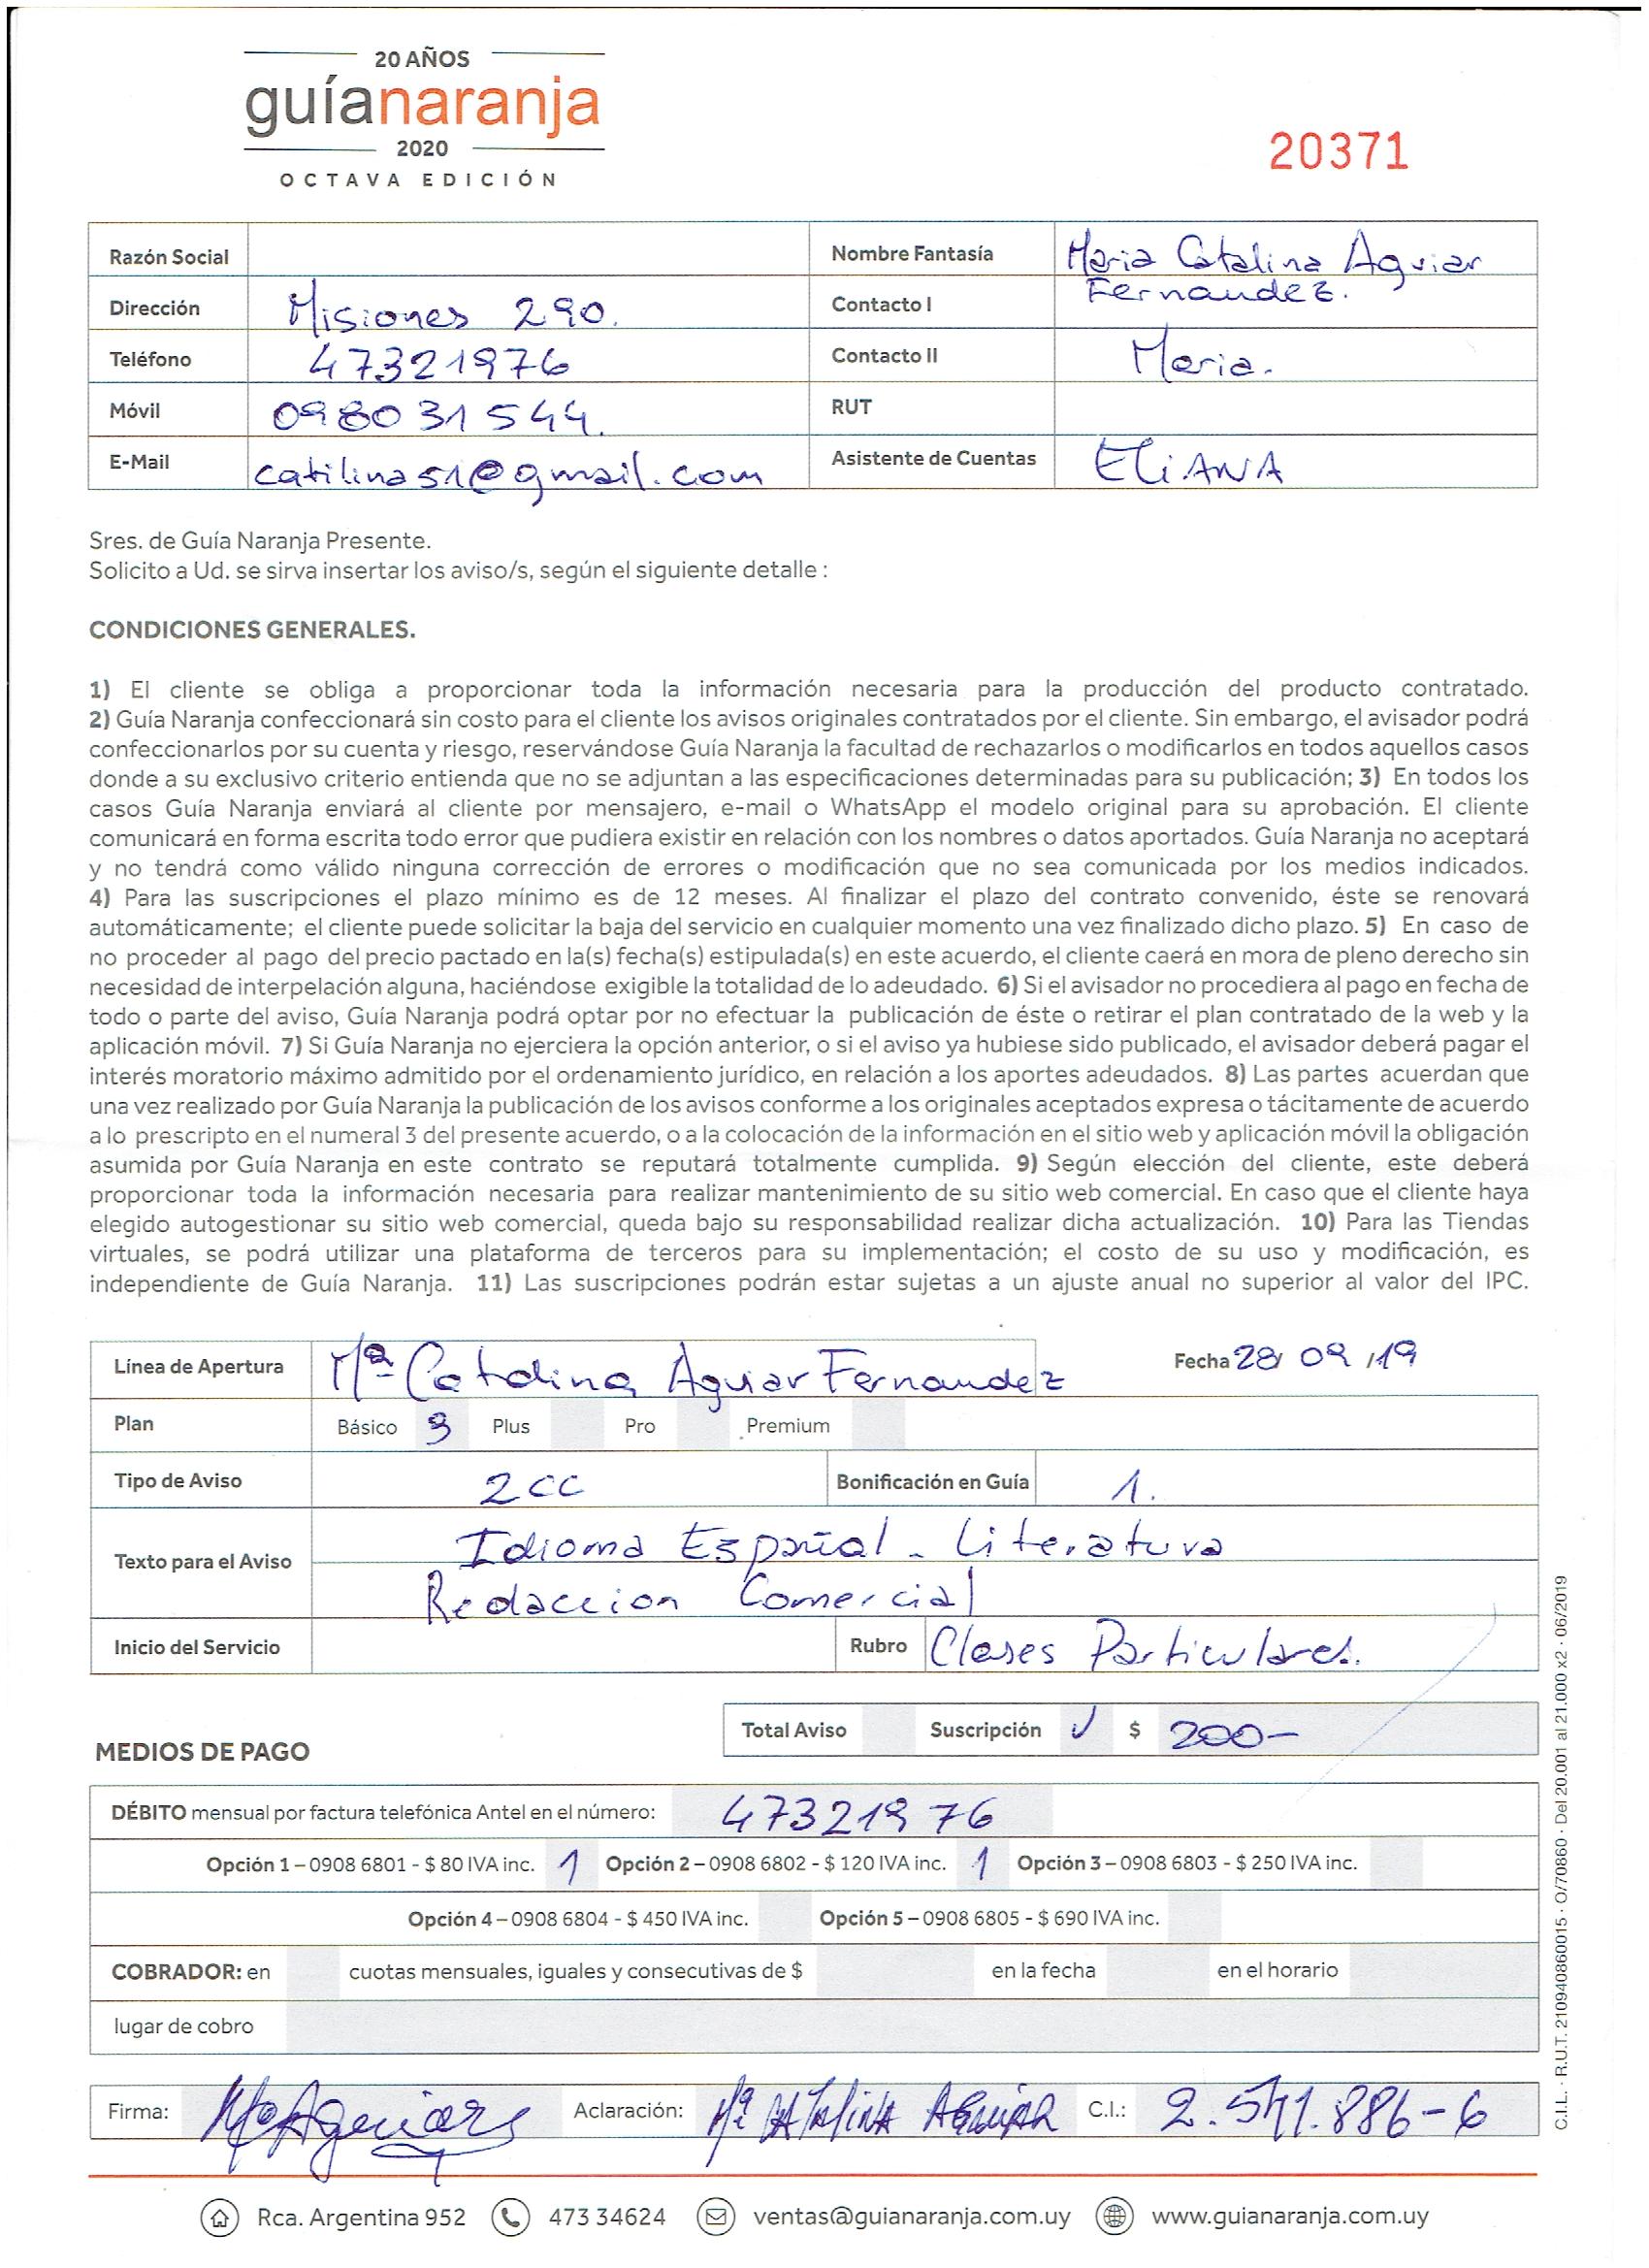 20 AÑOS
guíanaranja
2020
OCTAVA EDICIÓN
20371
Razón Social
Nombre Fantasía Maria Catalina Aguiar
Fernandez.
Dirección Misiones 290.
Contacto I
Teléfono 47321976
Contacto II Maria.
Móvil 098031544.
RUT
E-Mail catilina51@gmail.com
Asistente de Cuentas ELiANA
Sres. de Guía Naranja Presente.
Solicito a Ud. se sirva insertar los aviso/s, según el siguiente detalle :
CONDICIONES GENERALES.
1) El cliente se obliga a proporcionar toda la información necesaria para la producción del producto contratado.
2) Guía Naranja confeccionará sin costo para el cliente los avisos originales contratados por el cliente. Sin embargo, el avisador podrá
confeccionarlos por su cuenta y riesgo, reservándose Guía Naranja la facultad de rechazarlos o modificarlos en todos aquellos casos
donde a su exclusivo criterio entienda que no se adjuntan a las especificaciones determinadas para su publicación; 3) En todos los
casos Guía Naranja enviará al cliente por mensajero, e-mail o WhatsApp el modelo original para su aprobación. El cliente
comunicará en forma escrita todo error que pudiera existir en relación con los nombres o datos aportados. Guía Naranja no aceptará
y no tendrá como válido ninguna corrección de errores o modificación que no sea comunicada por los medios indicados.
4) Para las suscripciones el plazo mínimo es de 12 meses. Al finalizar el plazo del contrato convenido, éste se renovará
automáticamente; el cliente puede solicitar la baja del servicio en cualquier momento una vez finalizado dicho plazo. 5) En caso de
no proceder al pago del precio pactado en la(s) fecha(s) estipulada(s) en este acuerdo, el cliente caerá en mora de pleno derecho sin
necesidad de interpelación alguna, haciéndose exigible la totalidad de lo adeudado. 6) Si el avisador no procediera al pago en fecha de
todo o parte del aviso, Guía Naranja podrá optar por no efectuar la publicación de éste o retirar el plan contratado de la web y la
aplicación móvil. 7) Si Guía Naranja no ejerciera la opción anterior, o si el aviso ya hubiese sido publicado, el avisador deberá pagar el
interés moratorio máximo admitido por el ordenamiento jurídico, en relación a los aportes adeudados. 8) Las partes acuerdan que
una vez realizado por Guía Naranja la publicación de los avisos conforme a los originales aceptados expresa o tácitamente de acuerdo
a lo prescripto en el numeral 3 del presente acuerdo, o a la colocación de la información en el sitio web y aplicación móvil la obligación
asumida por Guía Naranja en este contrato se reputará totalmente cumplida. 9) Según elección del cliente, este deberá
proporcionar toda la información necesaria para realizar mantenimiento de su sitio web comercial. En caso que el cliente haya
elegido autogestionar su sitio web comercial, queda bajo su responsabilidad realizar dicha actualización. 10) Para las Tiendas
virtuales, se podrá utilizar una plataforma de terceros para su implementación; el costo de su uso y modificación, es
independiente de Guía Naranja. 11) Las suscripciones podrán estar sujetas a un ajuste anual no superior al valor del IPC.
Línea de Apertura Mª Catalina Aguiar Fernandez
Fecha 28/ 09 /19
Plan Básico 9 Plus Pro Premium
Tipo de Aviso 2cc Bonificación en Guía 1.
Texto para el Aviso Idioma Español - Literatura
Redaccion Comercial
Inicio del Servicio Rubro Clases Particulares.
Total Aviso Suscripción ✓ $ 200-
MEDIOS DE PAGO
DÉBITO mensual por factura telefónica Antel en el número: 47321976
Opción 1 – 0908 6801 - $ 80 IVA inc. 1 Opción 2 – 0908 6802 - $ 120 IVA inc. 1 Opción 3 – 0908 6803 - $ 250 IVA inc.
Opción 4 – 0908 6804 - $ 450 IVA inc. Opción 5 – 0908 6805 - $ 690 IVA inc.
COBRADOR: en cuotas mensuales, iguales y consecutivas de $ en la fecha en el horario
lugar de cobro
Firma: MªAguiar Aclaración: Mª CATALINA AGUIAR C.I.: 2.541.886-6
Rca. Argentina 952 473 34624 ventas@guianaranja.com.uy www.guianaranja.com.uy
C.I.L. · R.U.T. 210940860015 · O/70860 · Del 20.001 al 21.000 x2 · 06/2019